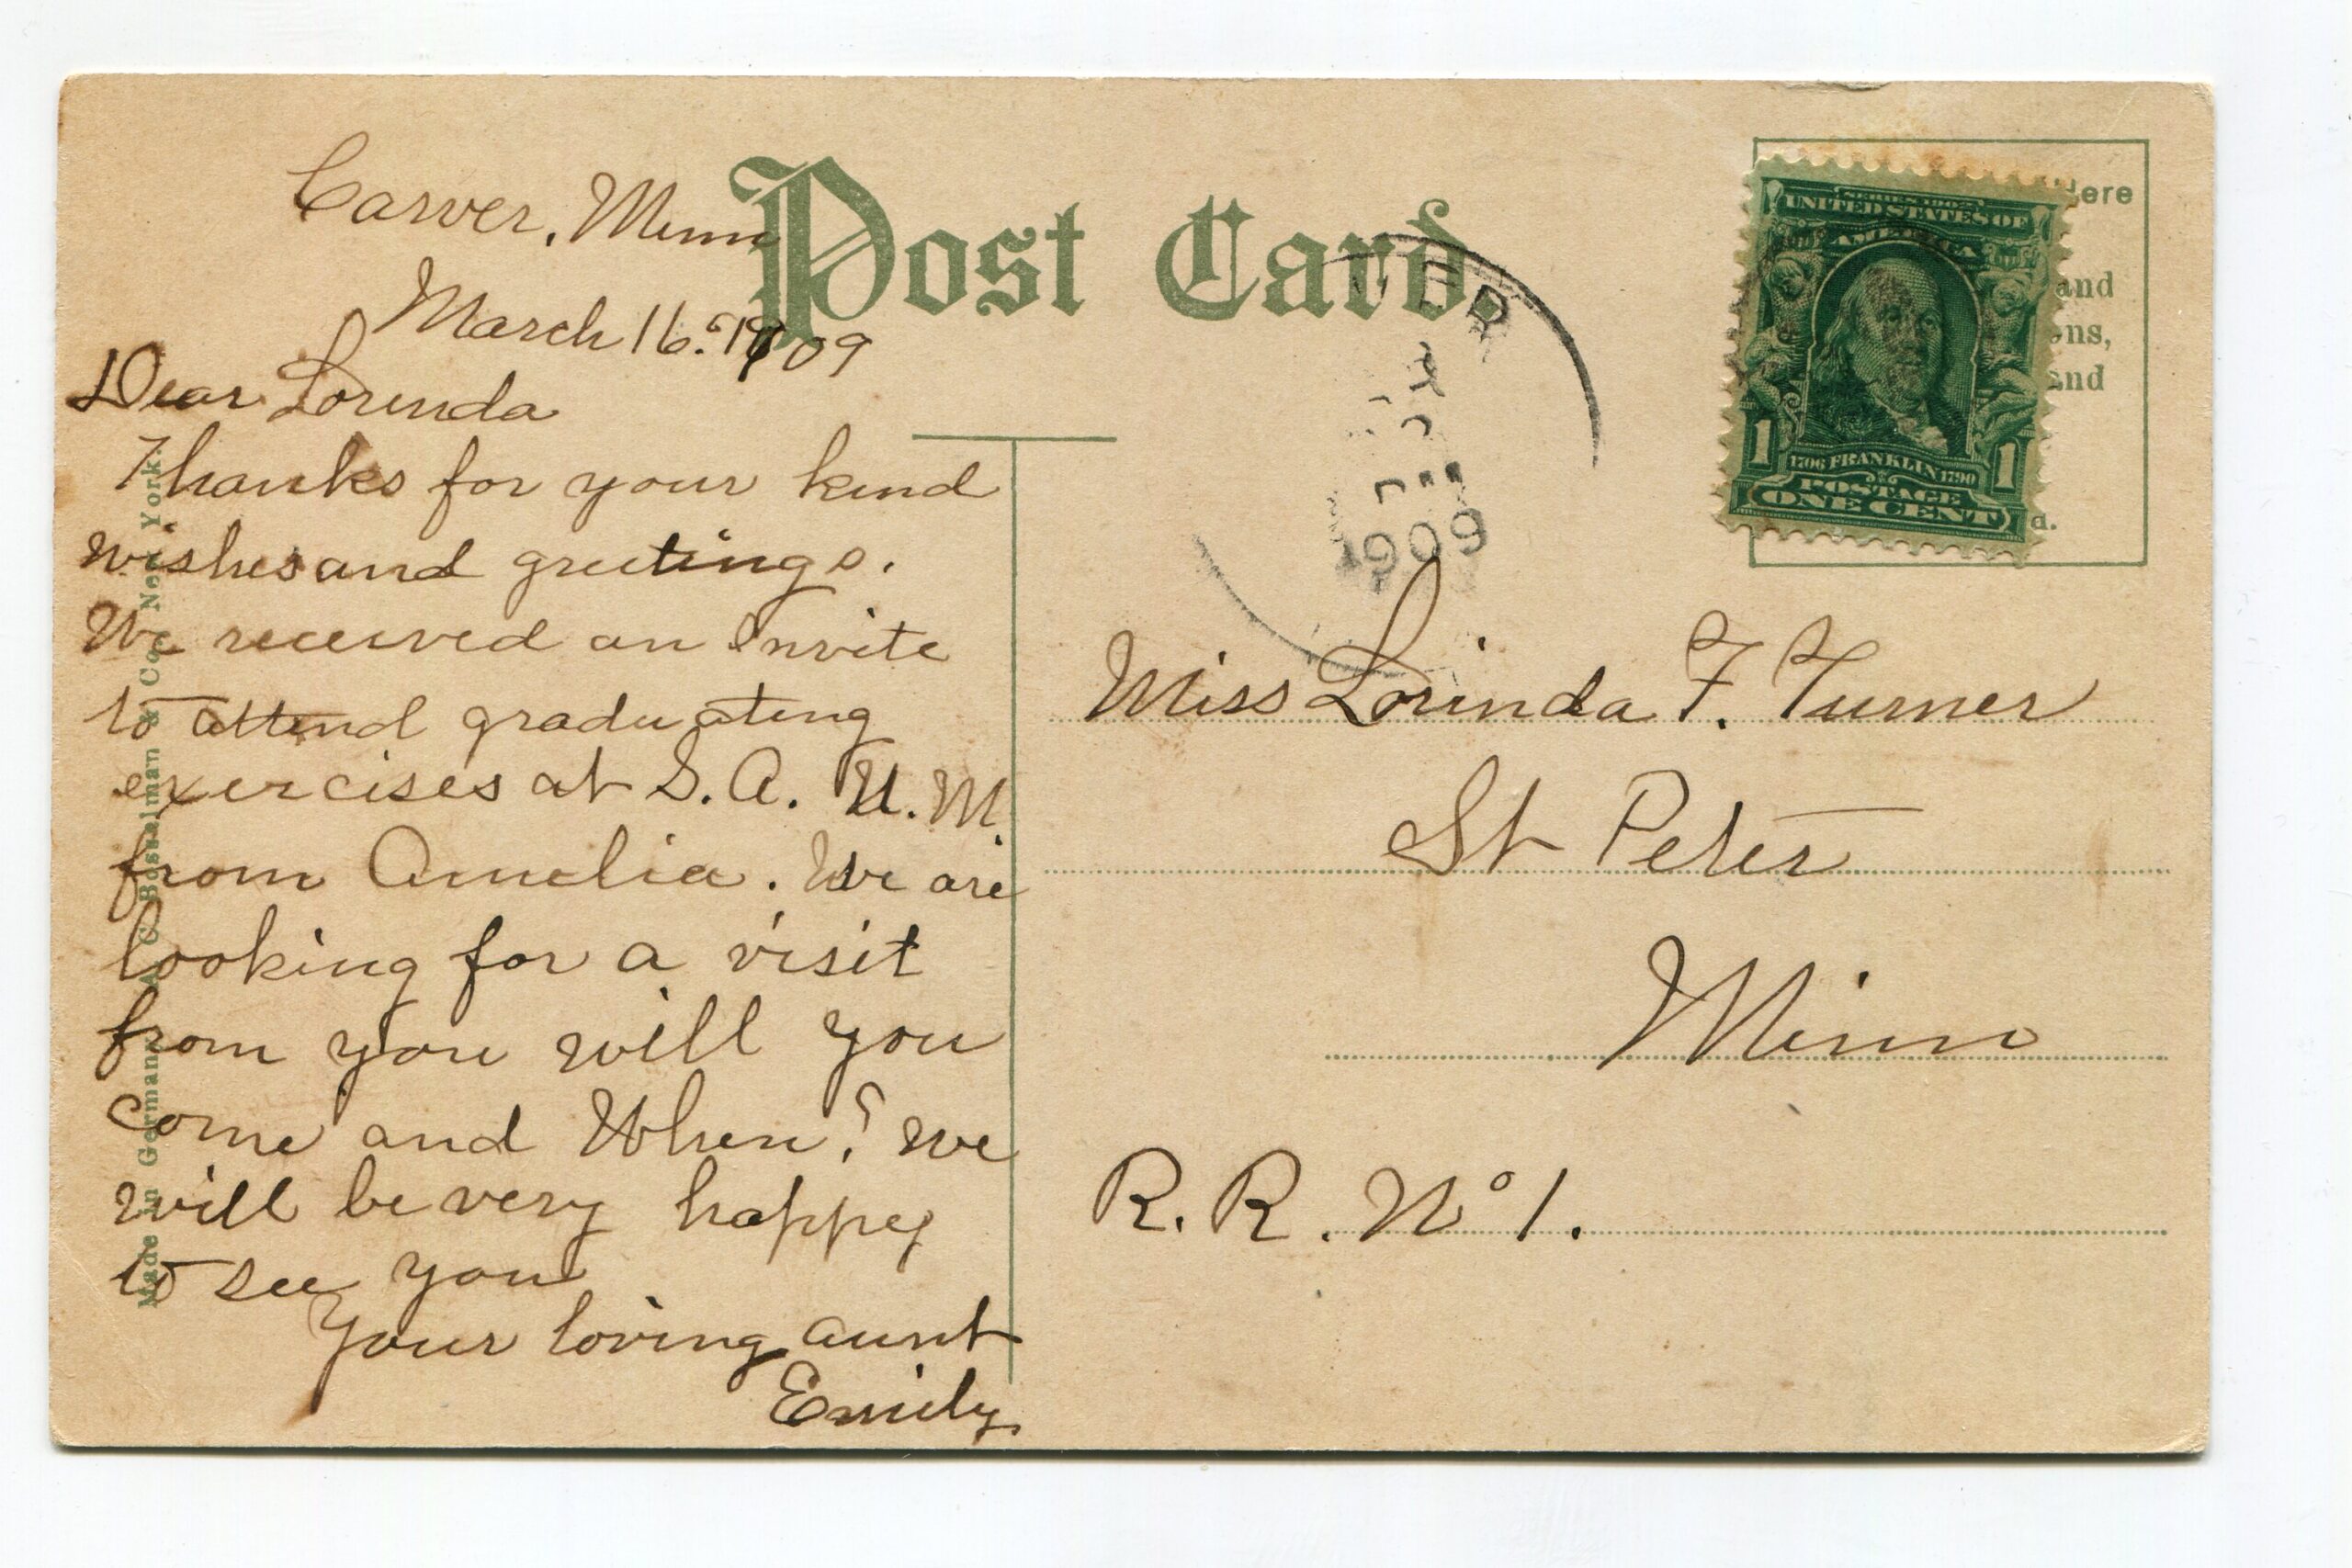 Carver, Minn
March 16th 1909
Dear Lorinda
Thanks for your kind
wishes and greetings.
We received an Invite
to attend graduating
exercises at S. A. U. M.
from Amelia. We are
looking for a visit
from you will you
come and When? we
will be very happy
to see you
Your loving aunt
Emily
Post Card.
ER
1909
ere
and
ns,
and
d.
SERIES 1902
UNITED STATES OF
AMERICA
1706 FRANKLIN 1790
POSTAGE
1 1
ONE CENT
Miss Lorinda F. Turner
St Peter
Minn
R. R. No 1.
Made in Germany. A. C. Bosselman & Co., New York.